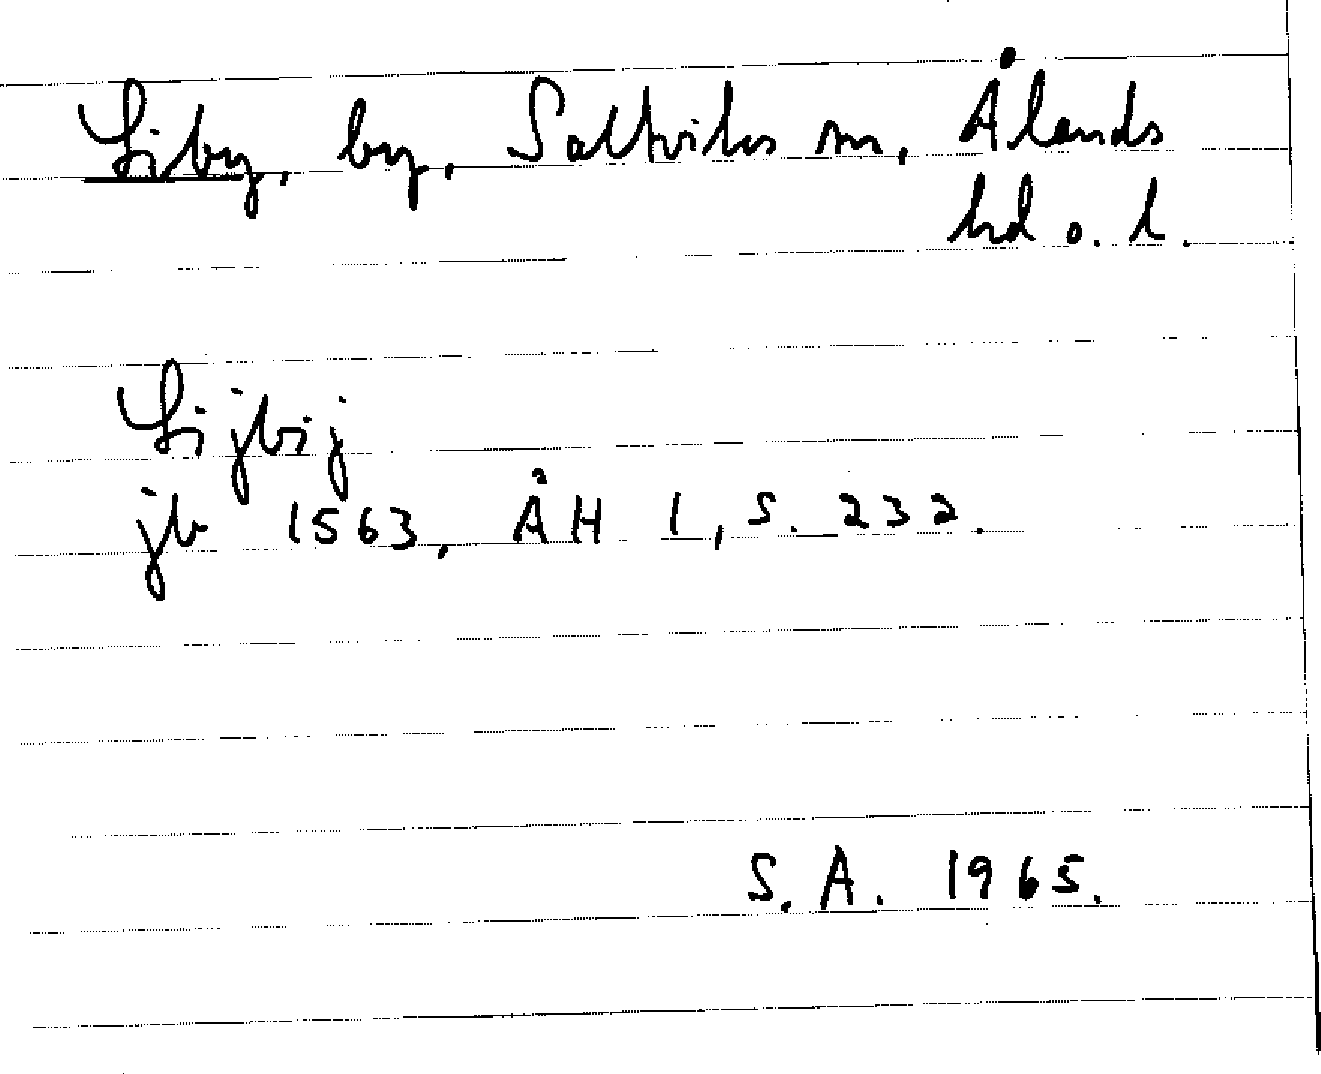 Liby, by, Saltviks sn, Ålands
hd o. l.
Lijbij
jb 1563, ÅH 1, s. 232.
S. A. 1965.